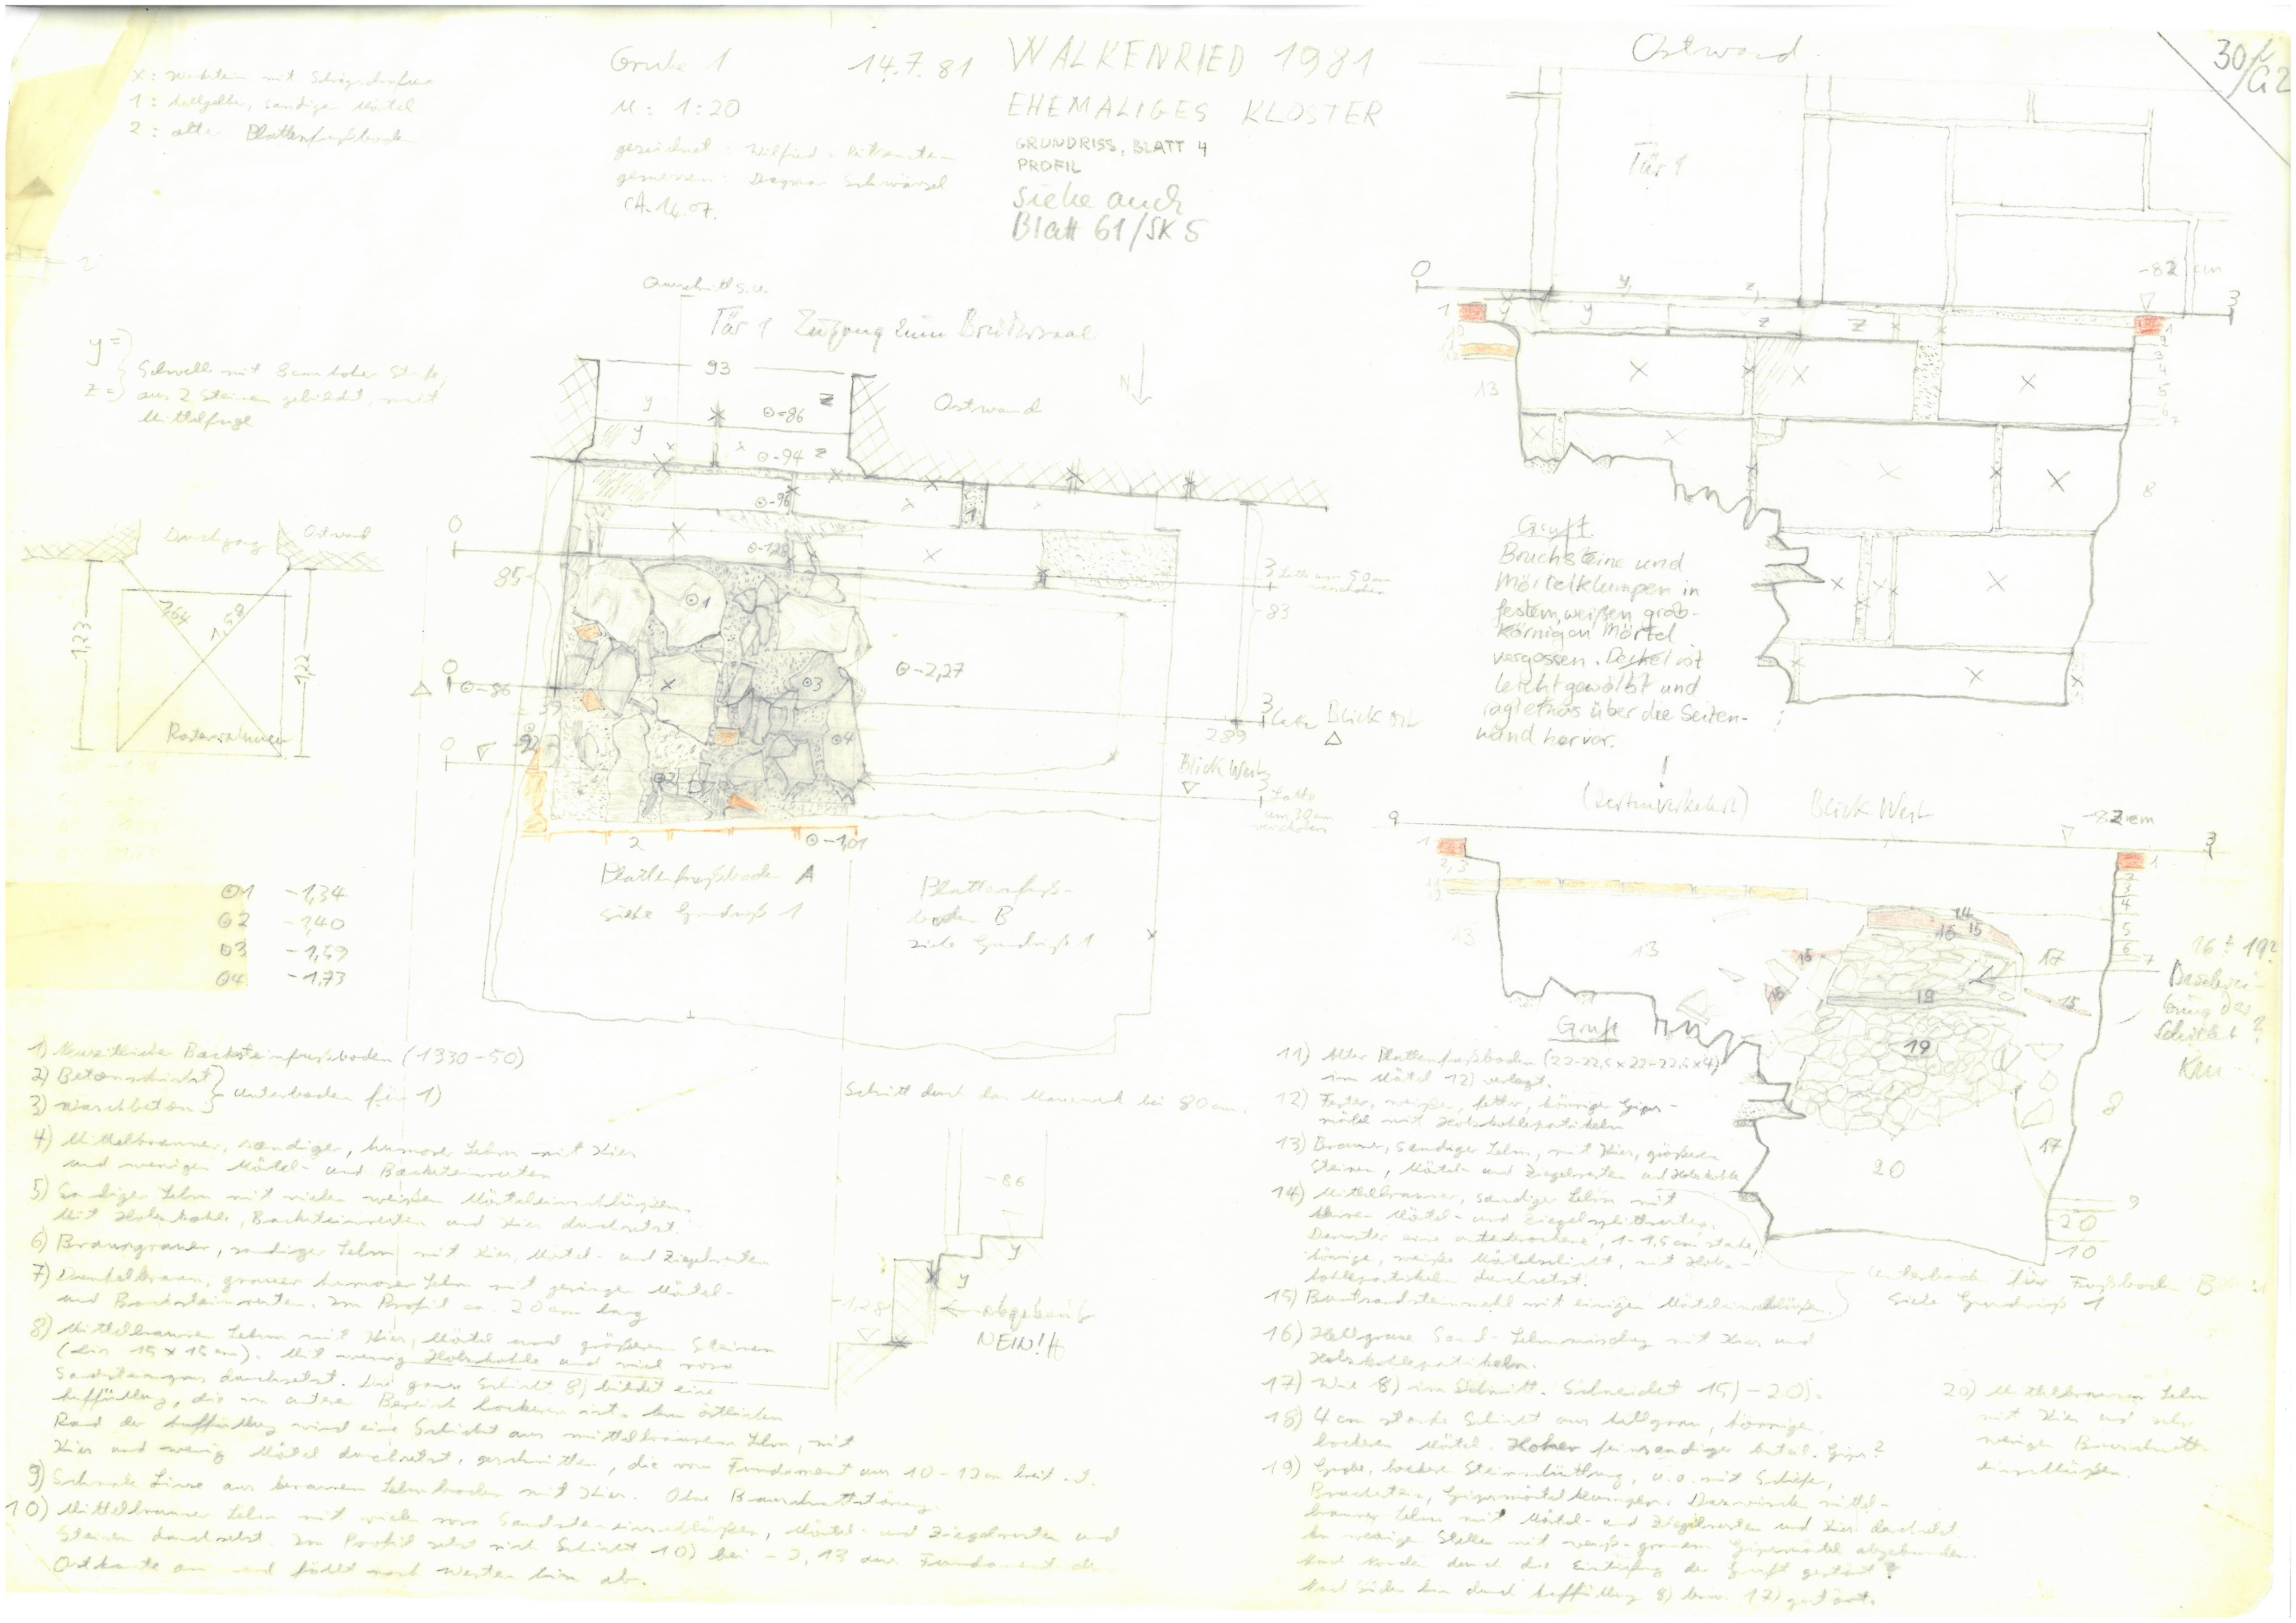 x: Werkstein mit
1: hellgelber, sandiger Mörtel
2: alter Plattenfußboden
Grube 1
M: 1:20
gezeichnet: Wilfried
gemessen: Dagmar
CA. 14.07.
14.7.81
WALKENRIED 1981
EHEMALIGES KLOSTER
GRUNDRISS, BLATT 4
PROFIL
Siehe auch
Blatt 61/SK 5
Ostwand
30/G2
Tür 1
y =
z =
Schwelle mit 8cm hoher Stufe,
aus 2 Steinen gebildet, mit
Mittelfuge
Querschnitt s.u.
Tür 1 Zugang zum Brüdersaal
93
N
Ostwand
y
z
-86
y
-94
z
-96
1
-1,28
0
85
83
0
-86
39
-92
0
1
3
4
2
-2,27
3
3
Latte
Blick Ost
289
Blick West
3
Latte
um 30cm
verschoben
3 Latte um 50cm
verschoben
2
-1,01
Plattenfußboden A
siehe Grundriß 1
Plattenfuß-
boden B
siehe Grundriß 1
Durchgang
Ostwand
1,23
1,64
1,58
1,22
Rasterrahmen
1 -1,34
2 -1,40
3 -1,59
4 -1,73
0
3
-82 cm
y
z
y
y
z
z
1
13
1
2
3
4
5
6
7
8
Gruft
Bruchsteine und
Mörtelklumpen in
festem, weißen, grob-
körnigen Mörtel
vergossen. Deckel ist
leicht gewölbt und
ragt etwas über die Seiten-
wand hervor.
!
(seitenverkehrt)
Blick West
-82 cm
3
1
2,3
13
13
14
15
16
16
16
17
15
18
19
17
20
1
2
3
4
5
6
7
8
9
20
10
16 = 19?
Gruft
1) Neuzeitlicher Backsteinfußboden (1330-50)
2) Betonschicht
3) Waschbeton
Unterboden für 1)
4) Mittelbrauner, sandiger, humoser Lehm mit Kies
und wenigen Mörtel- und Backsteinresten
5) Sandiger Lehm mit vielen weißen Mörteleinschlüßen.
Mit Holzkohle, Backsteinresten und Kies durchsetzt.
6) Braungrauer, sandiger Lehm mit Kies, Mörtel- und Ziegelresten
7) Dunkelbraun, grauer humoser Lehm mit geringen Mörtel-
und Backsteinresten. Im Profil ca. 20cm lang
8) Mittelbrauner Lehm mit Kies, Mörtel und größeren Steinen
(bis 15 x 15 cm). Mit wenig Holzkohle und viel rosa
Sandsteingrus durchsetzt. Die ganze Schicht 8) bildet eine
Auffüllung, die im unteren Bereich lockerer ist. Am östlichen
Rand der Auffüllung wird eine Schicht aus mittelbraunem Lehm, mit
Kies und wenig Mörtel durchsetzt, geschnitten, die vom Fundament aus 10-12cm breit ist.
9) Schmale Linse aus braunem Lehmboden mit Kies. Ohne
10) Mittelbrauner Lehm mit vielen rosa Sandsteineinschlüßen, Mörtel- und Ziegelresten und
Steinen durchsetzt. Im Profil setzt sich Schicht 10) bei -2,13 am Fundament der
Ostkante an und fällt nach Westen hin ab.
Schnitt durch das Mauerwerk bei 80cm.
-86
y
y
-1,28
NEIN!
11) Alter Plattenfußboden (22-22,5 x 22-22,5 x 4)
im Mörtel 12) verlegt.
12) Fester, weißer, fetter, körniger Gips-
mörtel mit Holzkohlepartikeln
13) Brauner, sandiger Lehm, mit Kies, größeren
Steinen, Mörtel- und Ziegelresten und Holzkohle
14) Mittelbrauner, sandiger Lehm mit
kleinen Mörtel- und Ziegelsplittresten.
Darunter eine unterbrochene, 1-1,5cm starke,
körnige, weiße Mörtelschicht, mit Holz-
kohlepartikeln durchsetzt.
15) Buntsandsteinmehl mit einigen Mörteleinschlüßen.
Unterboden für Fußboden B
Siehe Grundriß 1
16) Hellgraue Sand-Lehmmischung mit Kies und
Holzkohlepartikeln.
17) Wie 8) im Schnitt. Schneidet 15)-20).
18) 4 cm starke Schicht aus hellgrau, körnigen,
lockeren Mörtel. Hoher feinsandiger Anteil. Gips?
19) Grobe, lockere Steinschüttung, u.a. mit Schiefer,
Bruchstein, Gipsmörtelklumpen. Dazwischen mittel-
brauner Lehm mit Mörtel- und Ziegelresten und Kies durchsetzt.
An wenigen Stellen mit weiß-grauem Gipsmörtel abgebunden.
Nach Norden durch das Eintiefung der Gruft gestört?
Nach Süden hin durch Auffüllung 8) bzw. 17) gestört.
20) Mittelbrauner Lehm
mit Kies und sehr
wenigen Bauschutt-
einschlüßen.